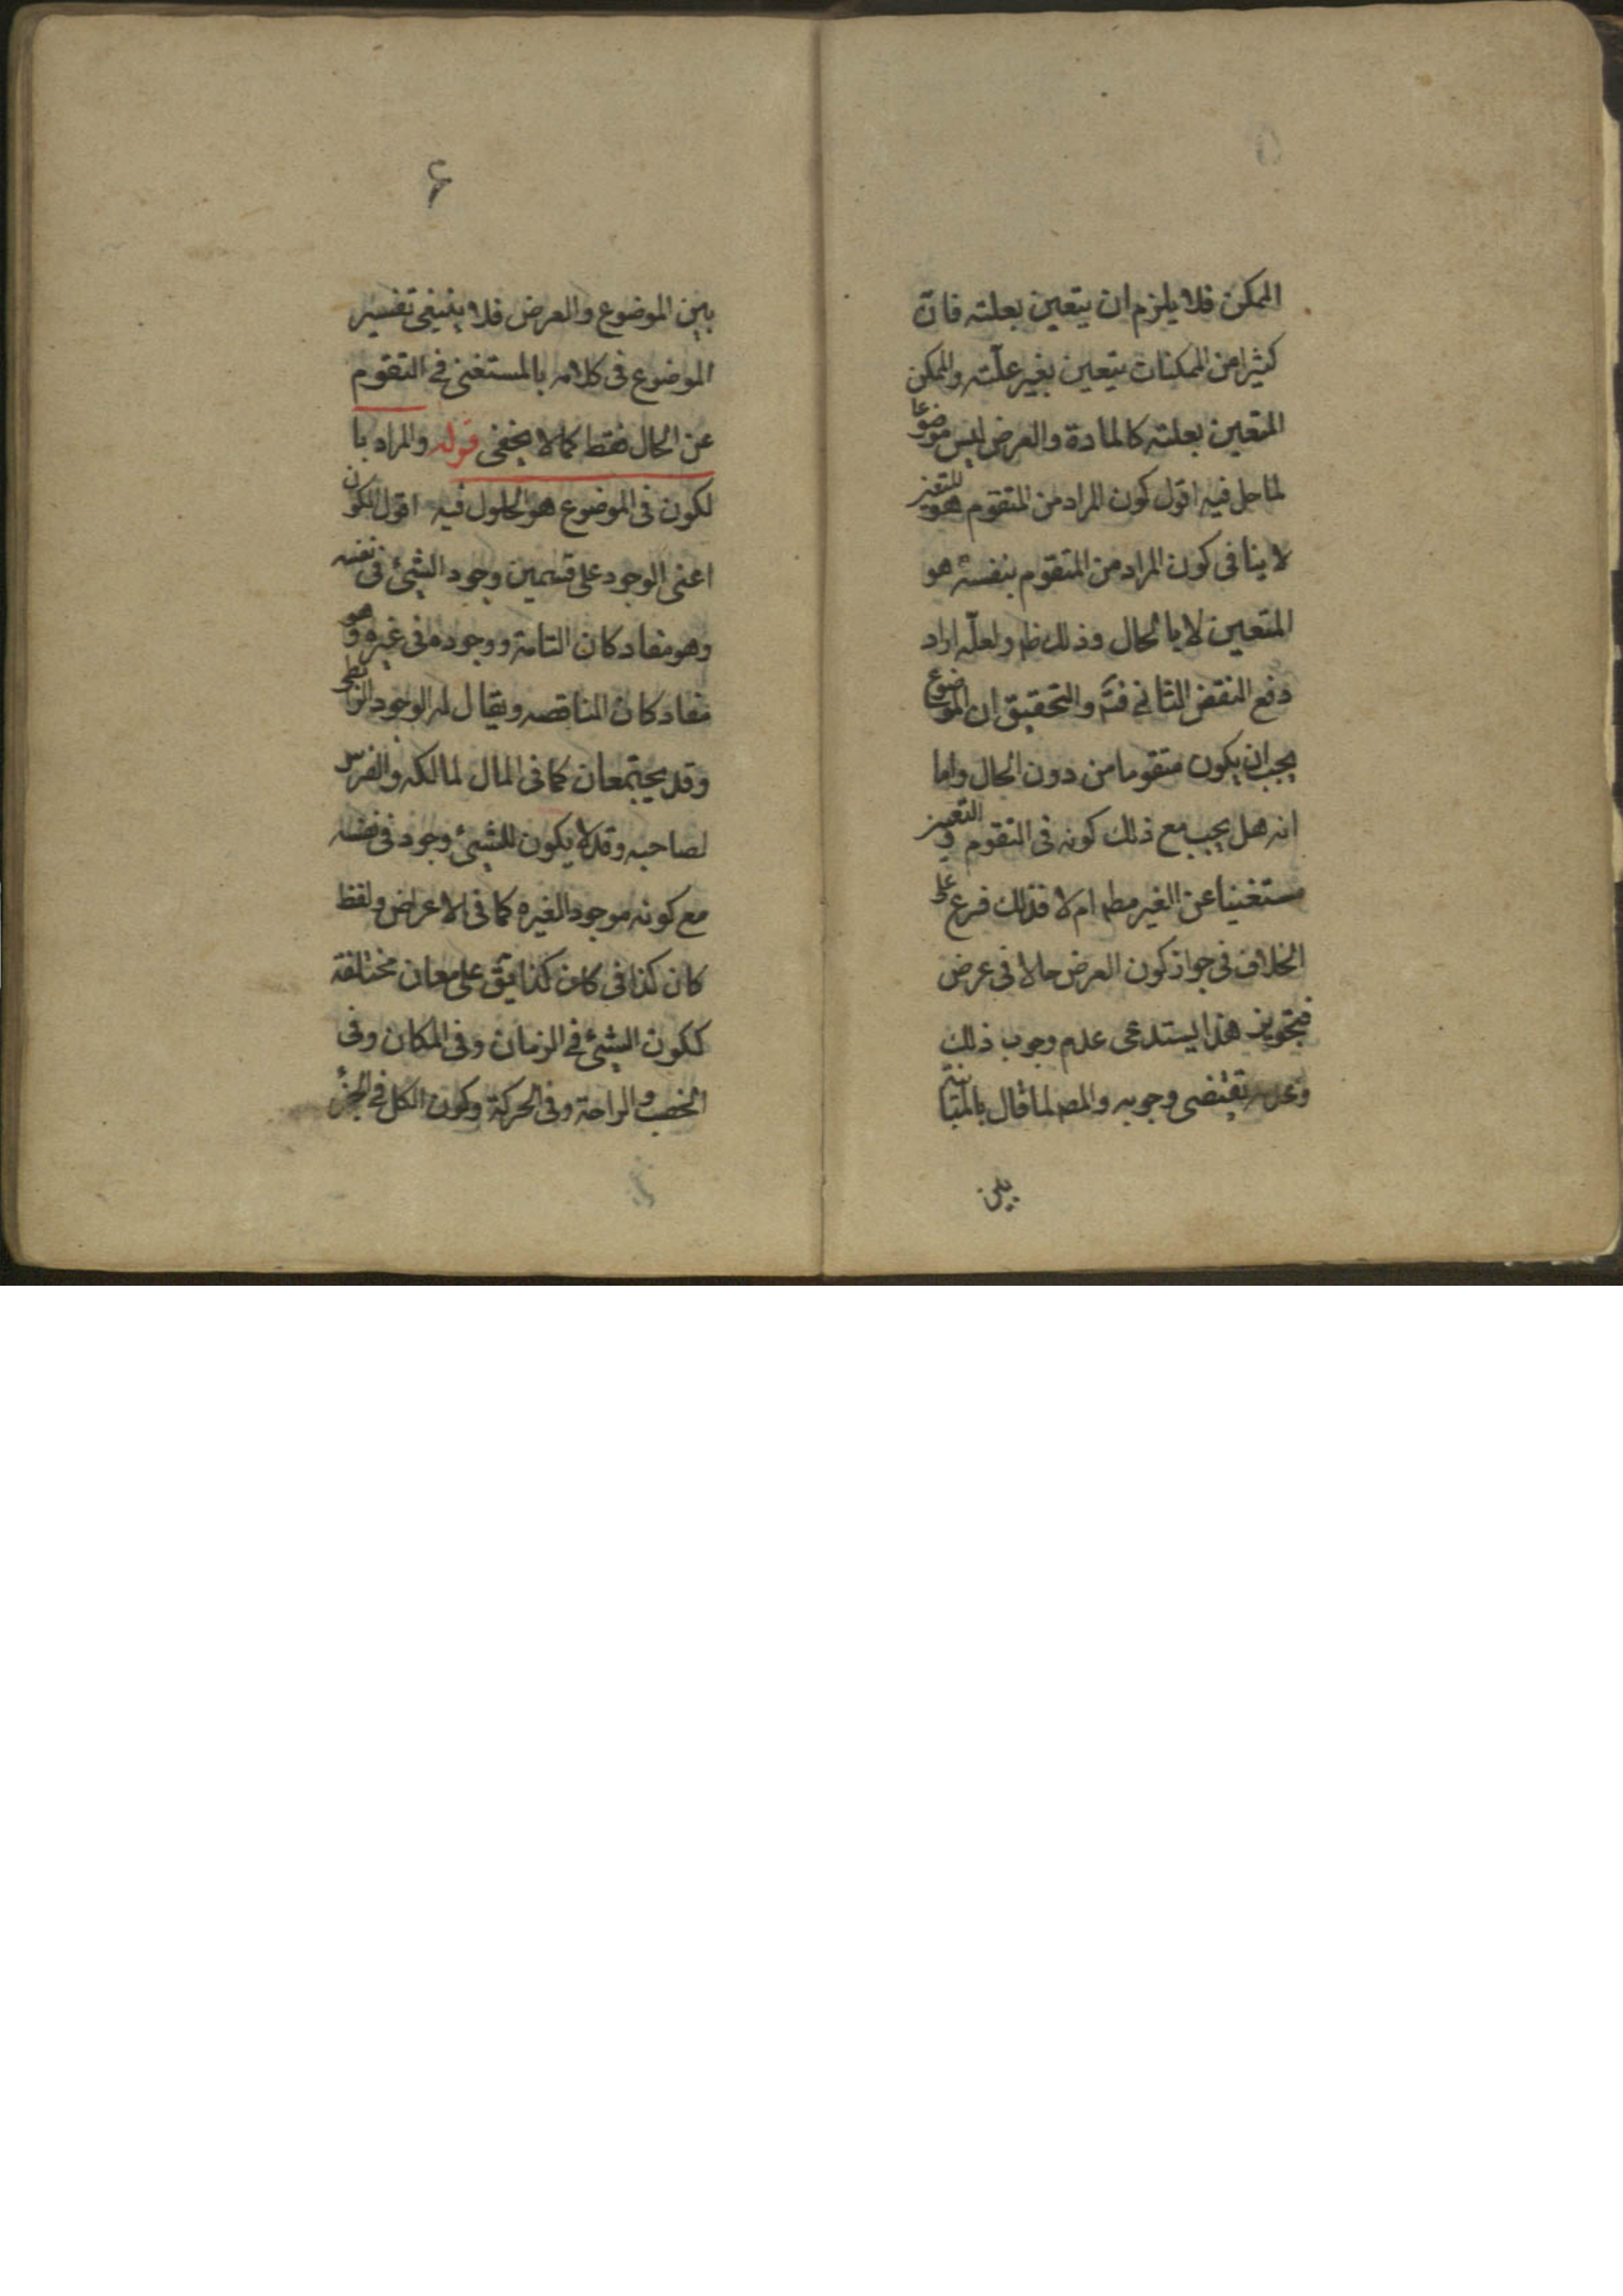 الممكن فلا يلزم ان يتعين بعلته فانّ
كثيرا من الممكنات يتعين بغير علّته والممكن
المتعين بعلته كالمادة والعرض ليس موضوعا
لما حل فيه اقول كون المراد من المتقوم هو المتعين
لا ينافى كون المراد من المتقوم بنفسه هو
المتعين لا بالحال وذلك ظ ولعلّه اراد
دفع النقض الثانى فتم والتحقيق ان الموضوع
يجب ان يكون متقوما من دون الحال واما
انه هل يجب مع ذلك كونه فى التقوم و التعين
مستغنيا عن الغير مطم ام لا فذلك فرع على
الخلاف فى جواز كون العرض حالا فى عرض
فتجويز هذا يستدعى عدم وجوب ذلك
وعدمه تقتضى وجوبه والمصم لما قال بالمباينة
بين
۶
بين الموضوع والعرض فلا ينبغى تفسير
الموضوع فى كلامه بالمستغنى فى التقوم
عن الحال فقط كما لا يخفى قوله والمراد با
لكون فى الموضوع هو الحلول فيه اقول الكون
اعنى الوجود على قسمين وجود الشيئ فى نفسه
وهو مفاد كان التامة ووجوده فى غيره وهو
مفاد كان الناقصه ويقال له الوجود الرابطى
وقد يجتمعان كما فى المال لمالكه والفرس
لصاحبه وقد لا يكون للشيئ وجود فى نفسه
مع كونه موجودا لغيره كما فى الاعراض ولفظ
كان كذا فى كذا يق على معان مختلفة
ككون الشيئ فى الزمان وفى المكان وفى
الخصب والراحة وفى الحركة وكون الكل فى الجزء